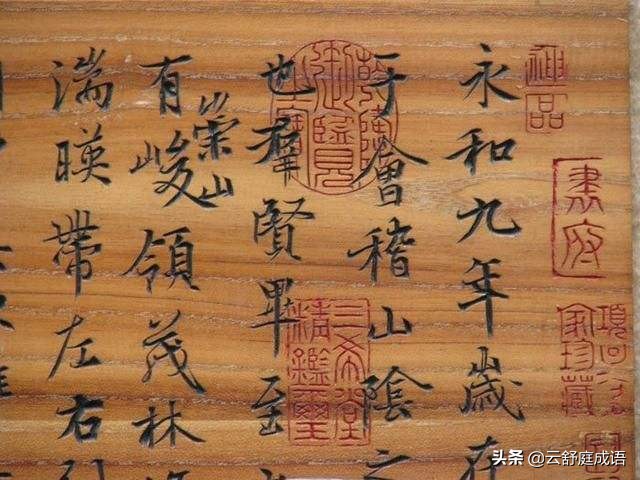 永和九年歲在
于會稽山陰之
也群賢畢至
有崇山峻領茂林
湍暎帶左右
神品
書府
乾隆御覽之寶
三希堂精鑑璽
項
家珍藏
头条 @云舒庭成语